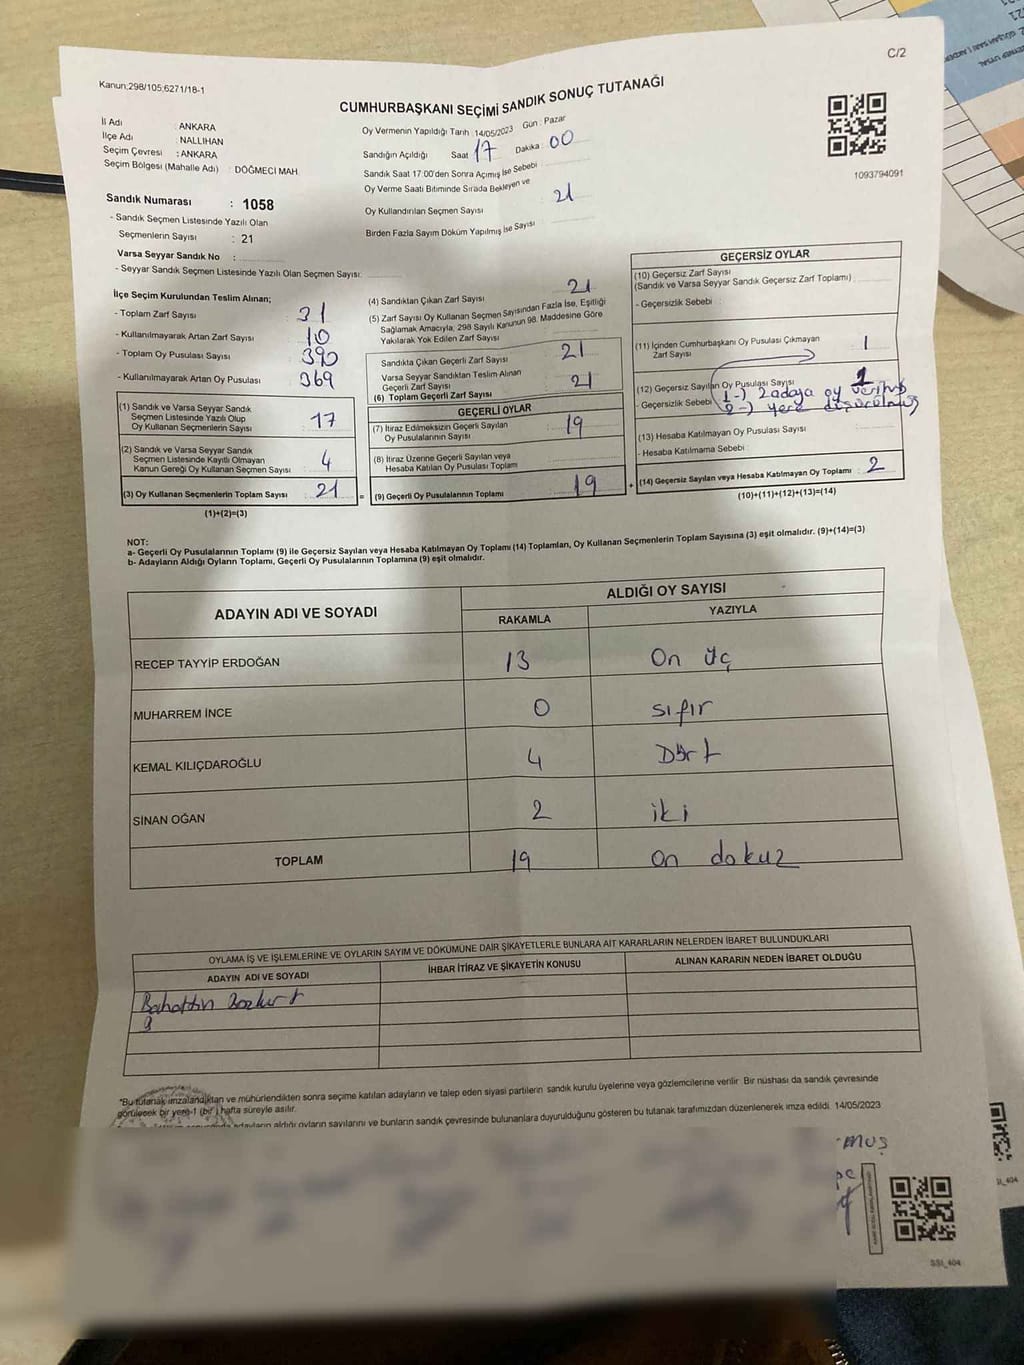 C/2
Kanun;298/105;6271/18-1
CUMHURBAŞKANI SEÇİMİ SANDIK SONUÇ TUTANAĞI
İl Adı : ANKARA
İlçe Adı : NALLIHAN
Seçim Çevresi : ANKARA
Seçim Bölgesi (Mahalle Adı) : DOĞMECİ MAH.
Sandık Numarası : 1058
- Sandık Seçmen Listesinde Yazılı Olan
Seçmenlerin Sayısı : 21
Varsa Seyyar Sandık No :
- Seyyar Sandık Seçmen Listesinde Yazılı Olan Seçmen Sayısı:
Oy Vermenin Yapıldığı Tarih : 14/05/2023 Gün : Pazar
Sandığın Açıldığı Saat 17 Dakika : 00
Sandık Saat 17:00'den Sonra Açımış İse Sebebi :
Oy Verme Saati Bitiminde Sırada Bekleyen ve
Oy Kullandırılan Seçmen Sayısı 21
Birden Fazla Sayım Döküm Yapılmış İse Sayısı
1093794091
İlçe Seçim Kurulundan Teslim Alınan;
- Toplam Zarf Sayısı : 31
- Kullanılmayarak Artan Zarf Sayısı : 10
- Toplam Oy Pusulası Sayısı : 390
- Kullanılmayarak Artan Oy Pusulası : 369
(1) Sandık ve Varsa Seyyar Sandık
Seçmen Listesinde Yazılı Olup
Oy Kullanan Seçmenlerin Sayısı : 17
(2) Sandık ve Varsa Seyyar Sandık
Seçmen Listesinde Kayıtlı Olmayan
Kanun Gereği Oy Kullanan Seçmen Sayısı : 4
(3) Oy Kullanan Seçmenlerin Toplam Sayısı : 21
(1)+(2)=(3)
(4) Sandıktan Çıkan Zarf Sayısı 21
(5) Zarf Sayısı Oy Kullanan Seçmen Sayısından Fazla İse, Eşitliği
Sağlamak Amacıyla, 298 Sayılı Kanunun 98. Maddesine Göre
Yakılarak Yok Edilen Zarf Sayısı
Sandıkta Çıkan Geçerli Zarf Sayısı 21
Varsa Seyyar Sandıktan Teslim Alınan
Geçerli Zarf Sayısı
(6) Toplam Geçerli Zarf Sayısı 21
GEÇERLİ OYLAR
(7) İtiraz Edilmeksizin Geçerli Sayılan
Oy Pusulalarının Sayısı 19
(8) İtiraz Üzerine Geçerli Sayılan veya
Hesaba Katılan Oy Pusulası Toplamı
= (9) Geçerli Oy Pusulalarının Toplamı 19 +
GEÇERSİZ OYLAR
(10) Geçersiz Zarf Sayısı
(Sandık ve Varsa Seyyar Sandık Geçersiz Zarf Toplamı)
- Geçersizlik Sebebi :
(11) İçinden Cumhurbaşkanı Oy Pusulası Çıkmayan
Zarf Sayısı 1
(12) Geçersiz Sayılan Oy Pusulası Sayısı 1
- Geçersizlik Sebebi : 1-) 2 adaya oy verilmiş
2-) yere düşürülmüş
(13) Hesaba Katılmayan Oy Pusulası Sayısı
- Hesaba Katılmama Sebebi :
(14) Geçersiz Sayılan veya Hesaba Katılmayan Oy Toplamı : 2
(10)+(11)+(12)+(13)=(14)
NOT:
a- Geçerli Oy Pusulalarının Toplamı (9) ile Geçersiz Sayılan veya Hesaba Katılmayan Oy Toplamı (14) Toplamları, Oy Kullanan Seçmenlerin Toplam Sayısına (3) eşit olmalıdır. (9)+(14)=(3)
b- Adayların Aldığı Oyların Toplamı, Geçerli Oy Pusulalarının Toplamına (9) eşit olmalıdır.
ADAYIN ADI VE SOYADI ALDIĞI OY SAYISI
RAKAMLA YAZIYLA
RECEP TAYYİP ERDOĞAN 13 On üç
MUHARREM İNCE 0 sıfır
KEMAL KILIÇDAROĞLU 4 Dört
SİNAN OĞAN 2 iki
TOPLAM 19 on dokuz
OYLAMA İŞ VE İŞLEMLERİNE VE OYLARIN SAYIM VE DÖKÜMÜNE DAİR ŞİKAYETLERLE BUNLARA AİT KARARLARIN NELERDEN İBARET BULUNDUKLARI
ADAYIN ADI VE SOYADI İHBAR İTİRAZ VE ŞİKAYETİN KONUSU ALINAN KARARIN NEDEN İBARET OLDUĞU
Bahattin Bozkurt
"Bu tutanak imzalandıktan ve mühürlendikten sonra seçime katılan adayların ve talep eden siyasi partilerin sandık kurulu üyelerine veya gözlemcilerine verilir. Bir nüshası da sandık çevresinde
görülecek bir yere 1 (bir ) hafta süreyle asılır.
adayların aldığı oyların sayılarını ve bunların sandık çevresinde bulunanlara duyurulduğunu gösteren bu tutanak tarafımızdan düzenlenerek imza edildi. 14/05/2023
SSI_404